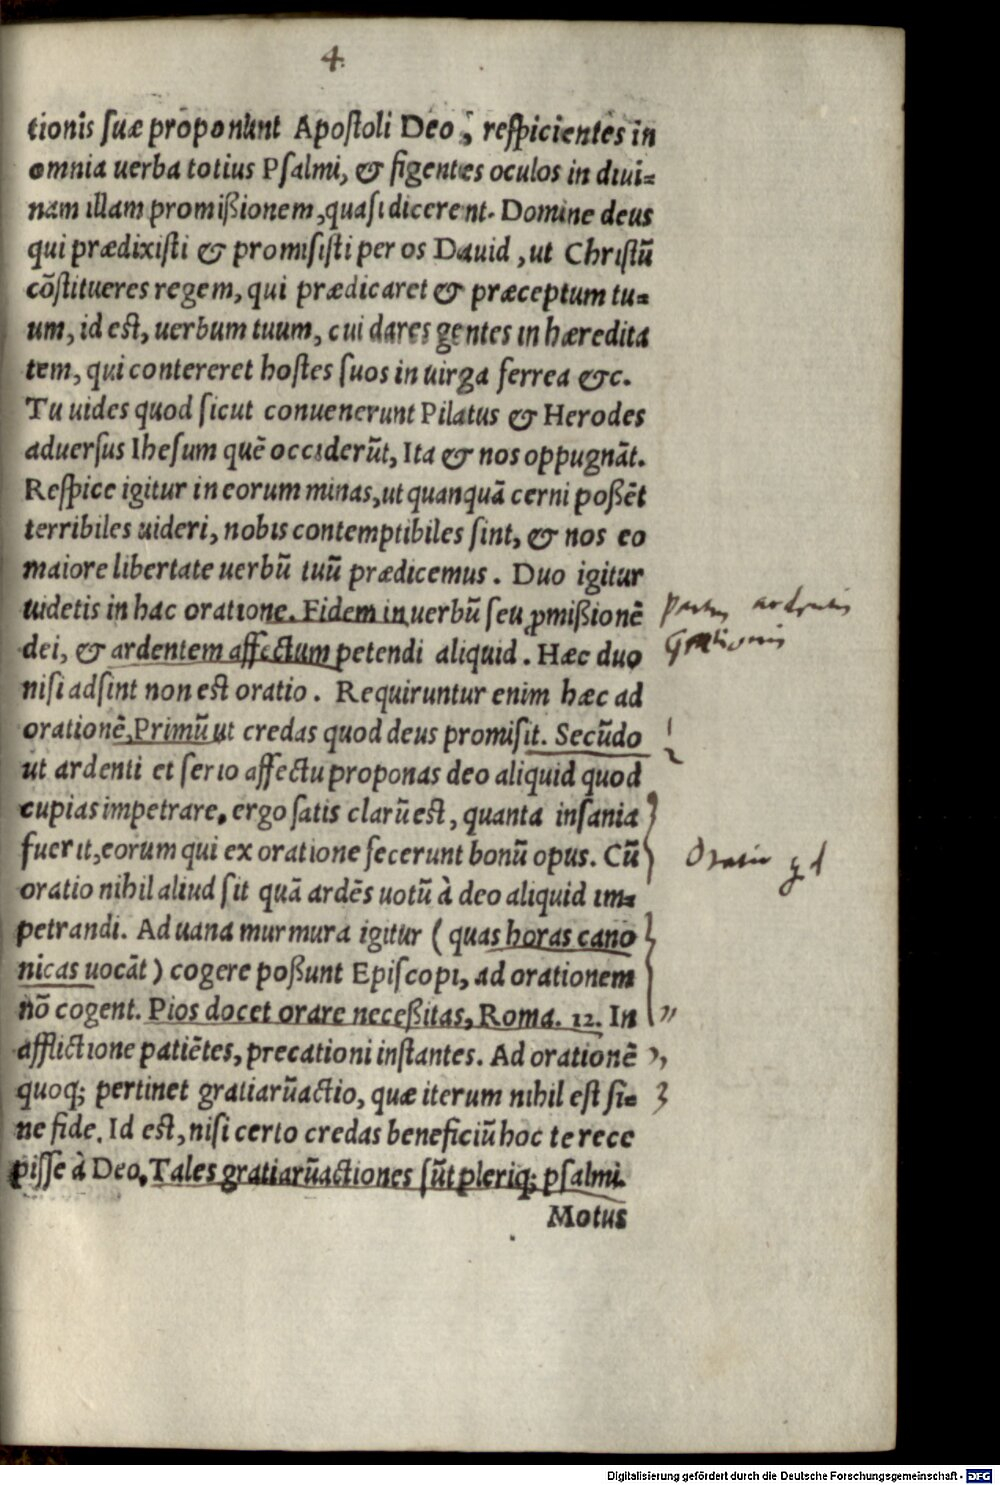 4.
tionis ſuæ proponunt Apoſtoli Deo, reſpicientes in
omnia uerba totius Pſalmi, & figentes oculos in diui-
nam illam promißionem, quaſi dicerent. Domine deus
qui prædixiſti & promiſiſti per os Dauid, ut Chriſtū
cōſtitueres regem, qui prædicaret & præceptum tu-
um, id eſt, uerbum tuum, cui dares gentes in hæredita
tem, qui contereret hoſtes ſuos in uirga ferrea &c.
Tu uides quod ſicut conuenerunt Pilatus & Herodes
aduerſus Iheſum quē occiderūt, Ita & nos oppugnāt.
Reſpice igitur in eorum minas, ut quanquā cerni poßēt
terribiles uideri, nobis contemptibiles ſint, & nos eo
maiore libertate uerbū tuū prædicemus. Duo igitur
uidetis in hac oratione. Fidem in uerbū ſeu ꝓmißionē
dei, & ardentem affectum petendi aliquid. Hæc duo
niſi adſint non eſt oratio. Requiruntur enim hæc ad
orationē, Primū ut credas quod deus promiſit. Secūdo
ut ardenti et ſerio affectu proponas deo aliquid quod
cupias impetrare, ergo ſatis clarū eſt, quanta inſania
fuerit, eorum qui ex oratione fecerunt bonū opus. Cū
oratio nihil aliud ſit quā ardēs uotū à deo aliquid im-
petrandi. Ad uana murmura igitur (quas horas cano
nicas uocāt) cogere poßunt Epiſcopi, ad orationem
nō cogent. Pios docet orare neceßitas, Roma. 12. In
afflictione patiētes, precationi inſtantes. Ad orationē
quoq; pertinet gratiarūactio, quæ iterum nihil eſt ſi-
ne fide. Id eſt, niſi certo credas beneficiū hoc te rece
piſſe à Deo. Tales gratiarūactiones ſūt pleriq; pſalmi.
Motus
Oratio qd
Digitalisierung gefördert durch die Deutsche Forschungsgemeinschaft - DFG